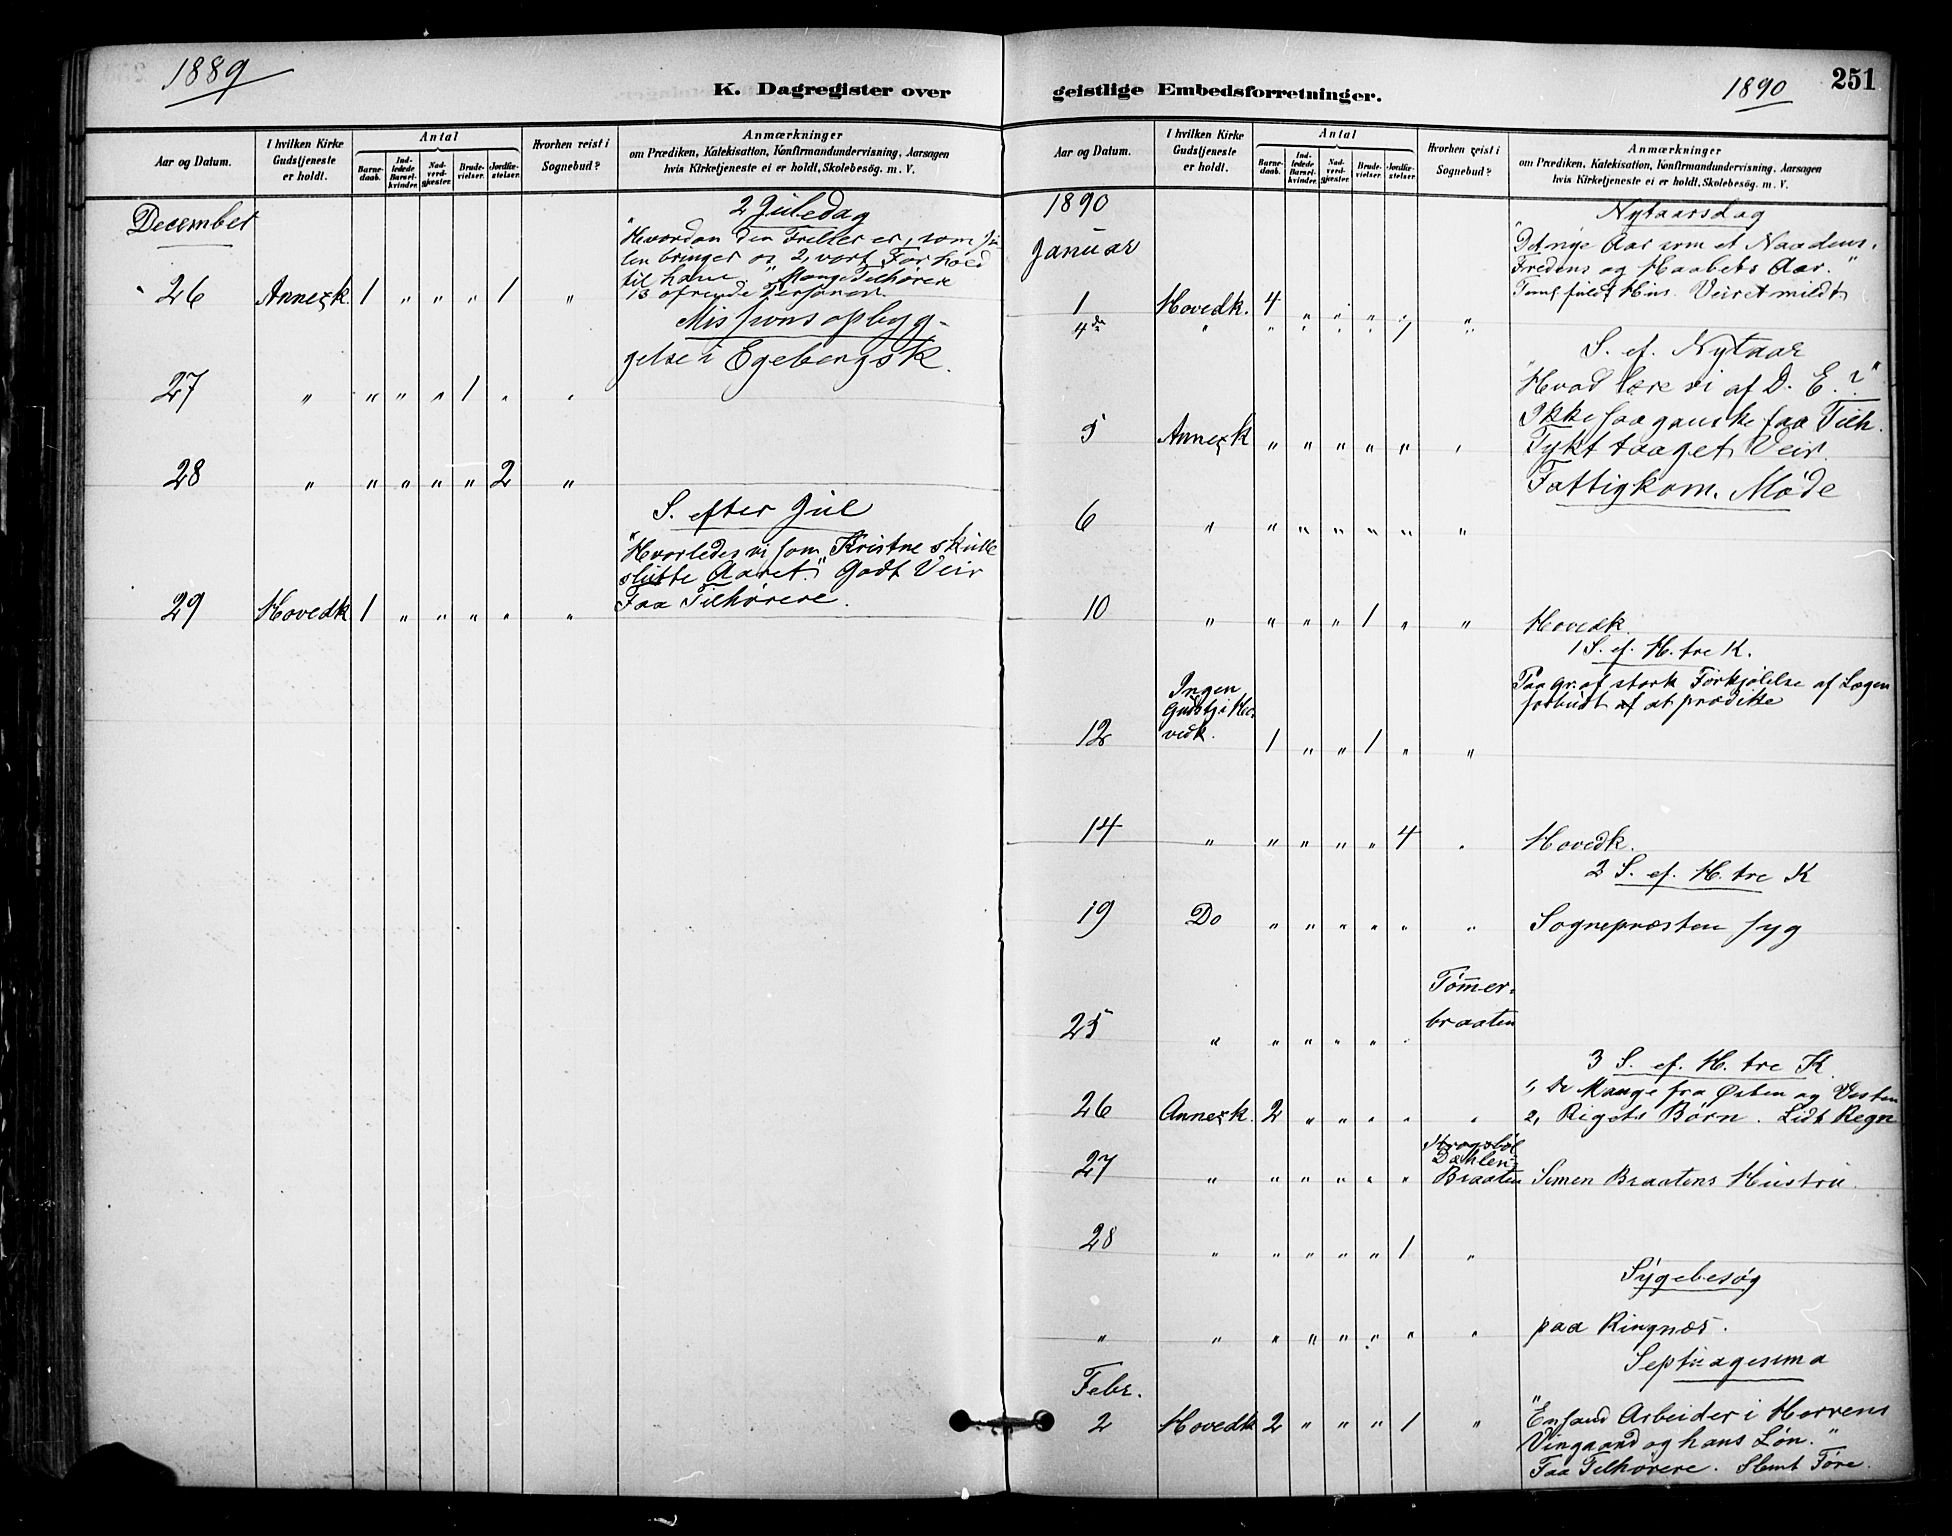 1889
K. Dagregister over
Aar og Datum.
I hvilken Kirke Gudstjeneste er holdt.
Antal
Barnedaab.
Indledede Barselkvinder.
Nadverdgjester.
Brudevielser.
Jordfæstelser.
Hvorhen reist i Sognebud?
Anmærkninger
om Prædiken, Katekisation, Konfirmandundervisning, Aarsagen
hvis Kirketjeneste ei er holdt, Skolebesøg. m. V.
December
2 Juledag
"Hvordan den Frelser er, som
bringer os 2, vort Forhold
til ham." Mange Tilhørere
13 ofrende Personer.
26 Annexk. 1 " " " 1 "
Missionsopbyg-
gelse i Egebergsk.
27 " " " " 1 " "
28 " " " " " 2 "
S. efter Jul
"Hvorledes vi som Kristne skulle
slutte Aaret." Godt Veir
Faa Tilhørere.
29 Hovedk 1 " " " " "
geistlige Embedsforretninger.
1890
251
Aar og Datum.
I hvilken Kirke Gudstjeneste er holdt.
Antal
Barnedaab.
Indledede Barselkvinder.
Nadverdgjester.
Brudevielser.
Jordfæstelser.
Hvorhen reist i Sognebud?
Anmærkninger
om Prædiken, Katekisation, Konfirmandundervisning, Aarsagen
hvis Kirketjeneste ei er holdt, Skolebesøg. m. V.
1890
Januar
Nytaarsdag
"Det nye Aar som et Naadens,
Fredens og Haabets Aar."
fuldt Hus. Veiret mildt
1 Hovedk. 4 " " " " "
4de " " " " " 1 "
S. ef. Nytaar
"Hvad lære vi af D. E.?"
Ikke saa ganske faa Tilh.
Tykt taaget Veir.
5 Annexk " " " " " "
Fattigkom. Møde
6 " " " " " " "
10 " " " " 1 " " Hovedk.
1 S. ef. H. tre K.
Paa Gr. af stærk Forkjølelse af Lægen
forbudt af at prædike
Ingen
Gudstj i Ho-
vedk.
12 1 " " 1 " "
14 " " " " " 4 " Hovedk.
2 S. ef. H. tre K
19 Do " " " " " " Sognepræsten syg
Tømmer-
braaten
25 " " " " " "
3 S. ef. H. tre K.
1, De Mange fra Østen og Vesten
26 Annexk. 2 " " " " " 2, Rigets Børn. Lidt Regn
Dæhlen-
Braaten
27 " " " " " " Simen Braatens Hustru.
28 " " " " " 1 "
Sygebesøg
" " " " " " " " paa Ringnæs.
Septuagesima
Febr.
2 Hovedk 2 " " " 1 "
"En sand Arbeider i Herrens
Vingaard og hans Løn."
Faa Tilhørere. Slemt Føre.